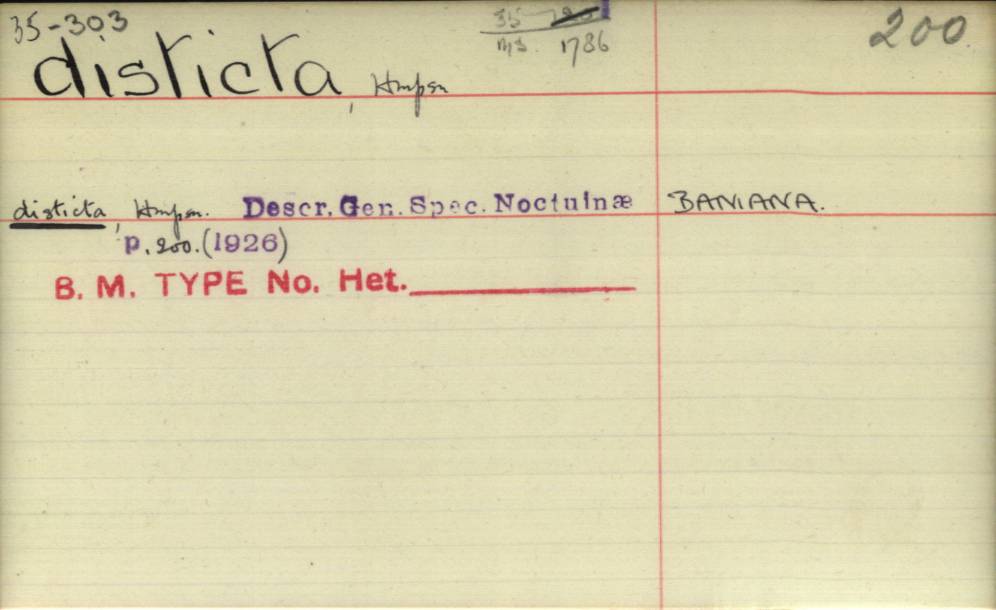 35-303
35
MS. 1786
200
disticta, Hmpsn
disticta, Hmpsn. Descr. Gen. Spec. Noctuinæ BANIANA.
p. 200. (1926)
B. M. TYPE No. Het.